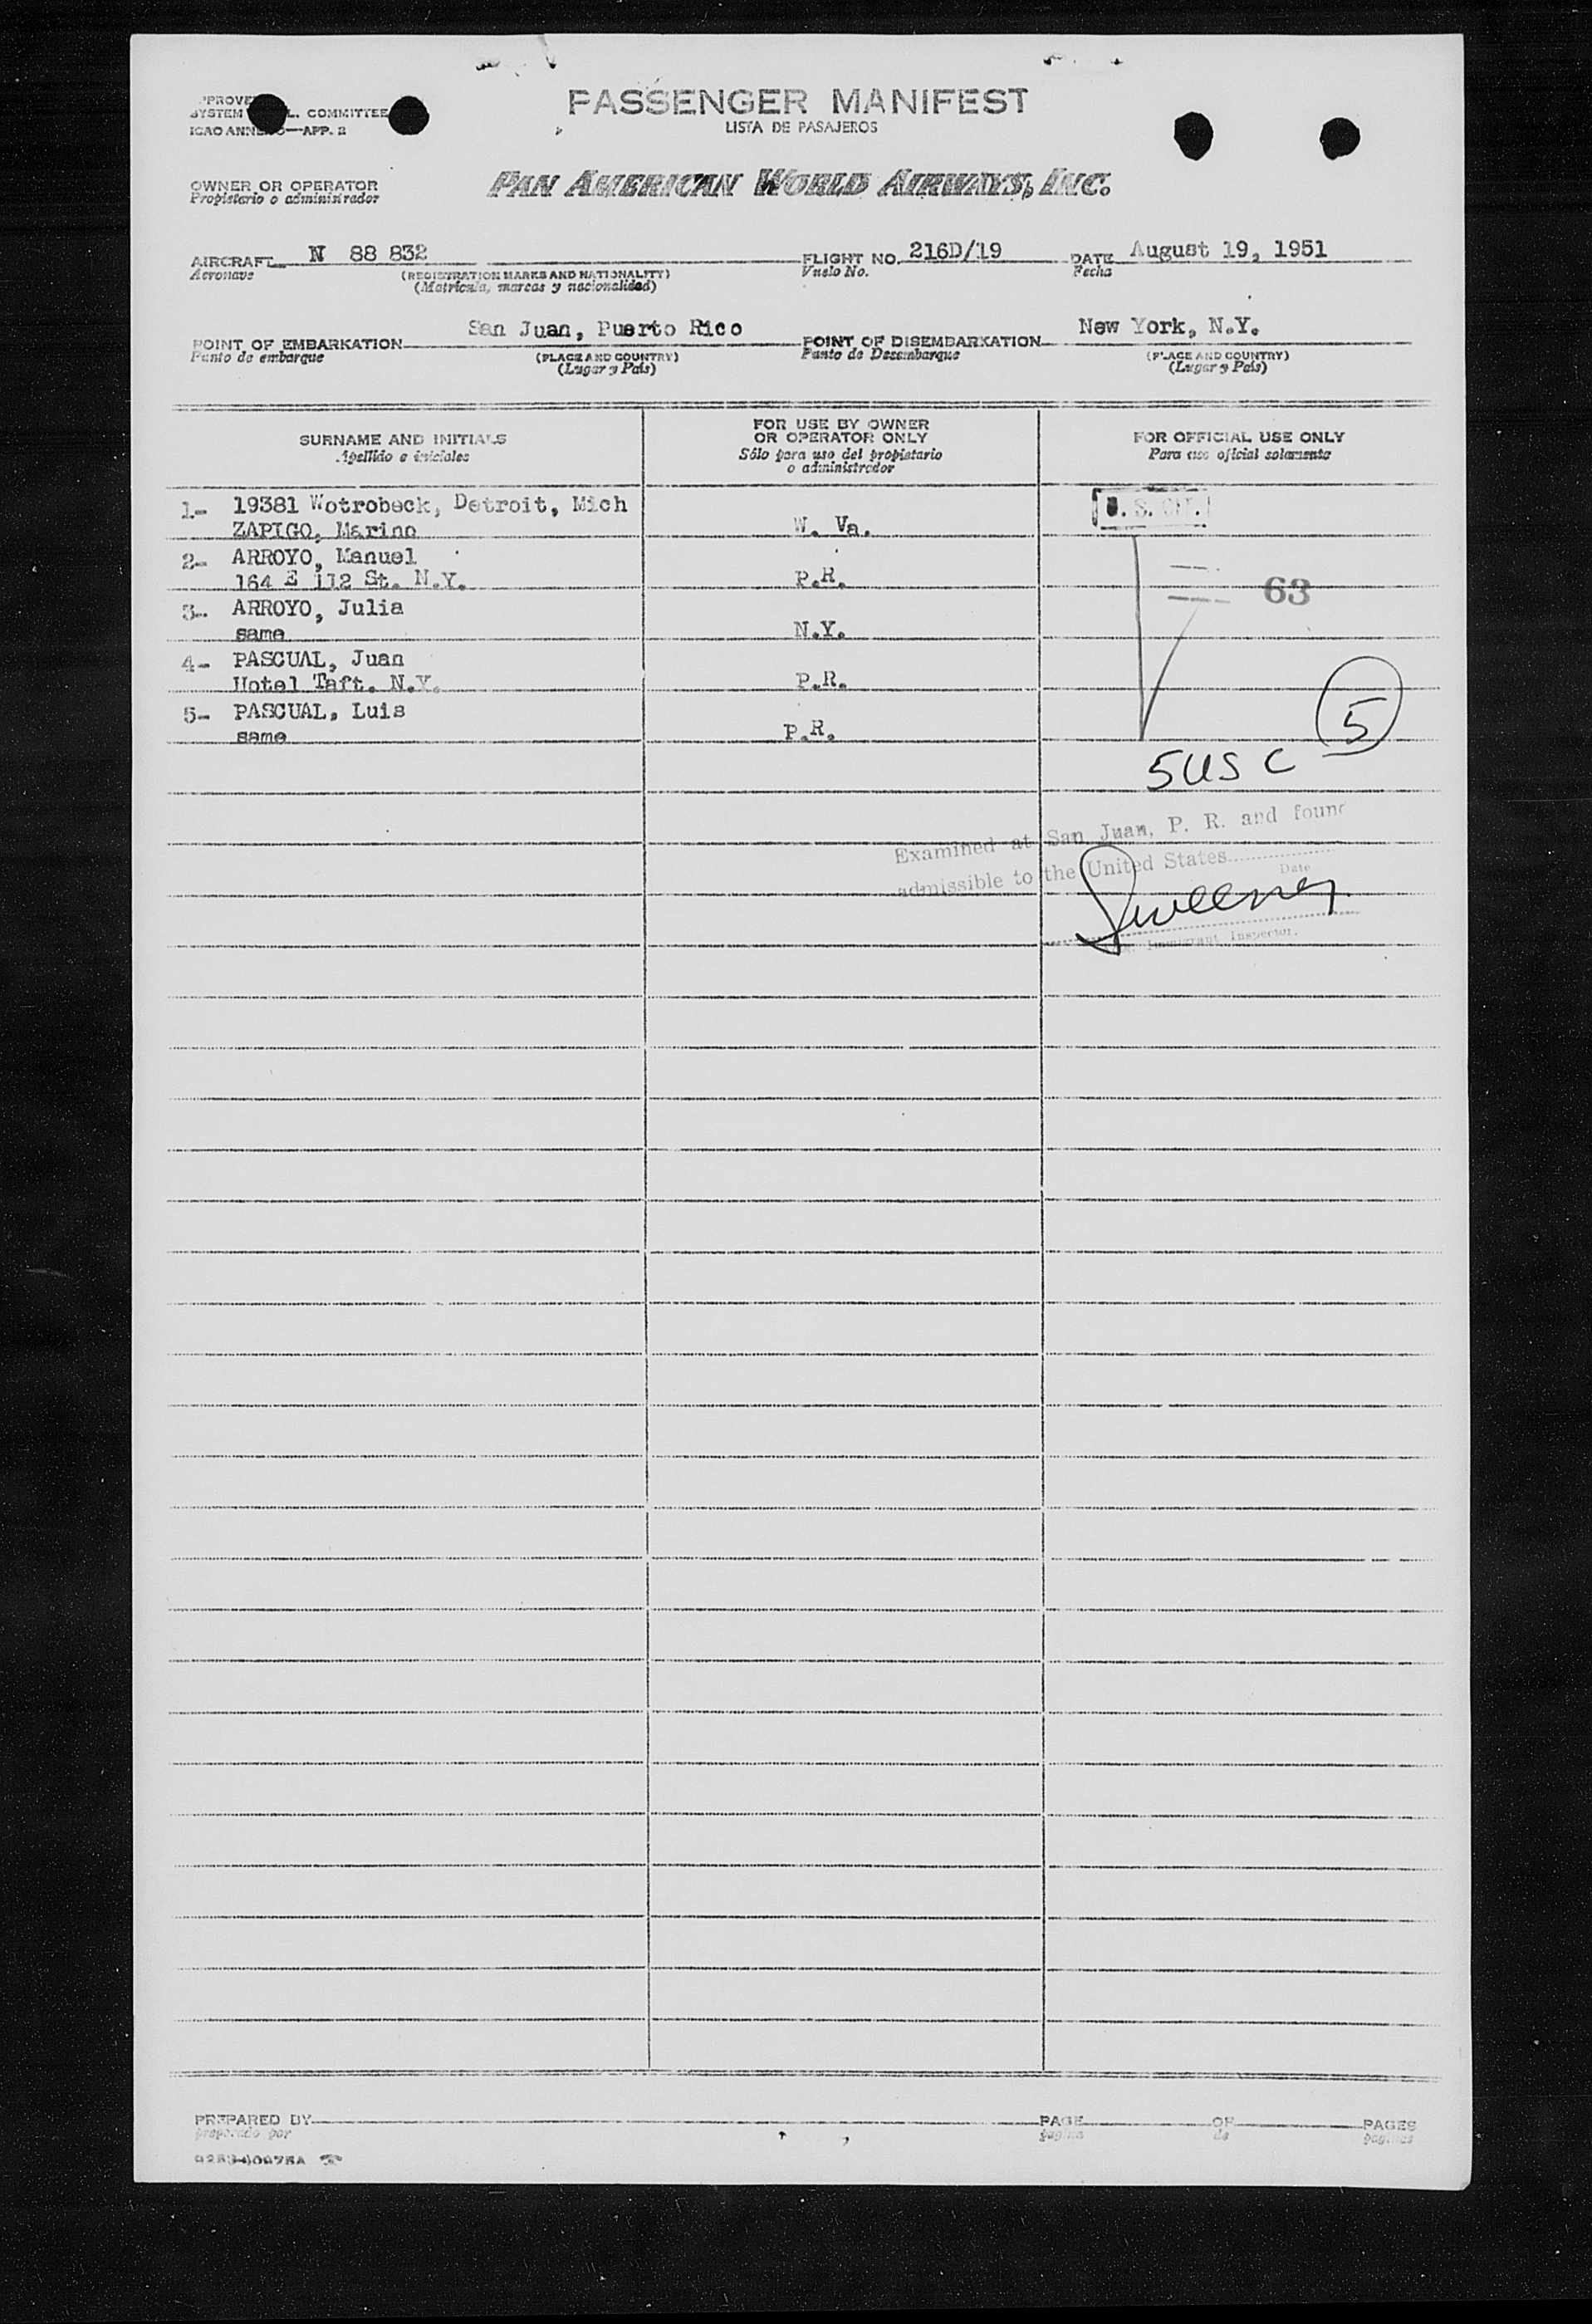 PASSENGER MANIFEST
LISTA DE PASAJEROS
COMMITTEE
ICAO ANNEX 9—APP. 2
OWNER OR OPERATOR
Propietario o administrador
PAN AMERICAN WORLD AIRWAYS, INC.
AIRCRAFT N 88 832 FLIGHT NO. 216D/19 DATE August 19, 1951
Aeronave (REGISTRATION MARKS AND NATIONALITY) Vuelo No. Fecha
(Matricula, marcas y nacionalidad)
POINT OF EMBARKATION San Juan, Puerto Rico POINT OF DISEMBARKATION New York, N.Y.
Punto de embarque (PLACE AND COUNTRY) Punto de Desembarque (PLACE AND COUNTRY)
(Lugar y País) (Lugar y País)
SURNAME AND INITIALS
Apellido e iniciales
FOR USE BY OWNER
OR OPERATOR ONLY
Sólo para uso del propietario
o administrador
FOR OFFICIAL USE ONLY
Para uso oficial solamente
1- 19381 Wotrobeck, Detroit, Mich
ZAPIGO, Marino W. Va.
U. S. CIT.
2- ARROYO, Manuel
164 E 112 St. N.Y. P.R.
63
3- ARROYO, Julia
same N.Y.
4- PASCUAL, Juan
Hotel Taft. N.Y. P.R.
5- PASCUAL, Luis
same P.R.
5
5 USC
Examined at San Juan, P. R. and found
admissible to the United States
Date
Sweeney
Immigrant Inspector.
PREPARED BY PAGE OF PAGES
preparado por página de páginas